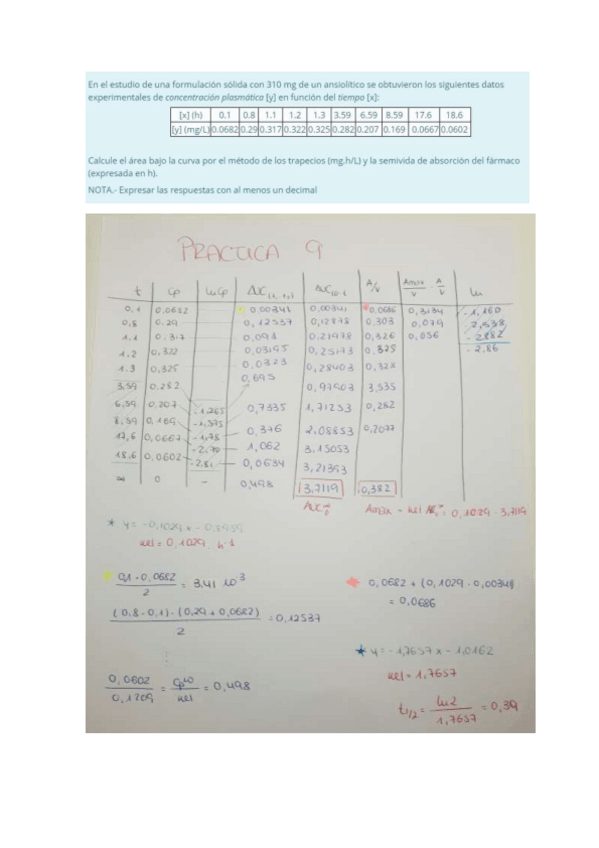 En el estudio de una formulación sólida con 310 mg de un ansiolítico se obtuvieron los siguientes datos
experimentales de concentración plasmática [y] en función del tiempo [x]:
[x] (h) 0.1 0.8 1.1 1.2 1.3 3.59 6.59 8.59 17.6 18.6
[y] (mg/L) 0.0682 0.29 0.317 0.322 0.325 0.282 0.207 0.169 0.0667 0.0602
Calcule el área bajo la curva por el método de los trapecios (mg.h/L) y la semivida de absorción del fármaco
(expresada en h).
NOTA.- Expresar las respuestas con al menos un decimal
PRACTICA 9
t Cp ln Cp AUC AUC A/V Amax/V - A/V ln
0,1 0,0682 0,00341 0,00341 0,0686 0,3134 -1,160
0,8 0,29 0,12537 0,12878 0,303 0,079 -2,538
1,1 0,317 0,091 0,21978 0,326 0,056 -2,882
1,2 0,322 0,03195 0,25173 0,325 -2,86
1,3 0,325 0,0323 0,28403 0,328
3,59 0,282 0,695 0,97903 3,535
6,59 0,207 -1,265 0,7335 1,71253 0,282
8,59 0,169 -1,575 0,376 2,08853 0,2077
17,6 0,0667 -1,78 1,062 3,15053
18,6 0,0602 -2,70 0,0634 3,21393
∞ 0 -2,81 - 0,498 3,7119 0,382
AUC Amax = kel = 0,1029 · 3,7119
* y = -0,1029 x - 0,8959
kel = 0,1029 h-1
0,1 · 0,0682 / 2 = 3,41 10³
(0,8 - 0,1) · (0,29 + 0,0682) / 2 = 0,12537
0,0602 / 0,1209 = Cp / kel = 0,498
0,0682 + (0,1029 · 0,00341)
= 0,0686
* y = -1,7657 x - 1,0162
kel = 1,7657
t1/2 = ln2 / 1,7657 = 0,39